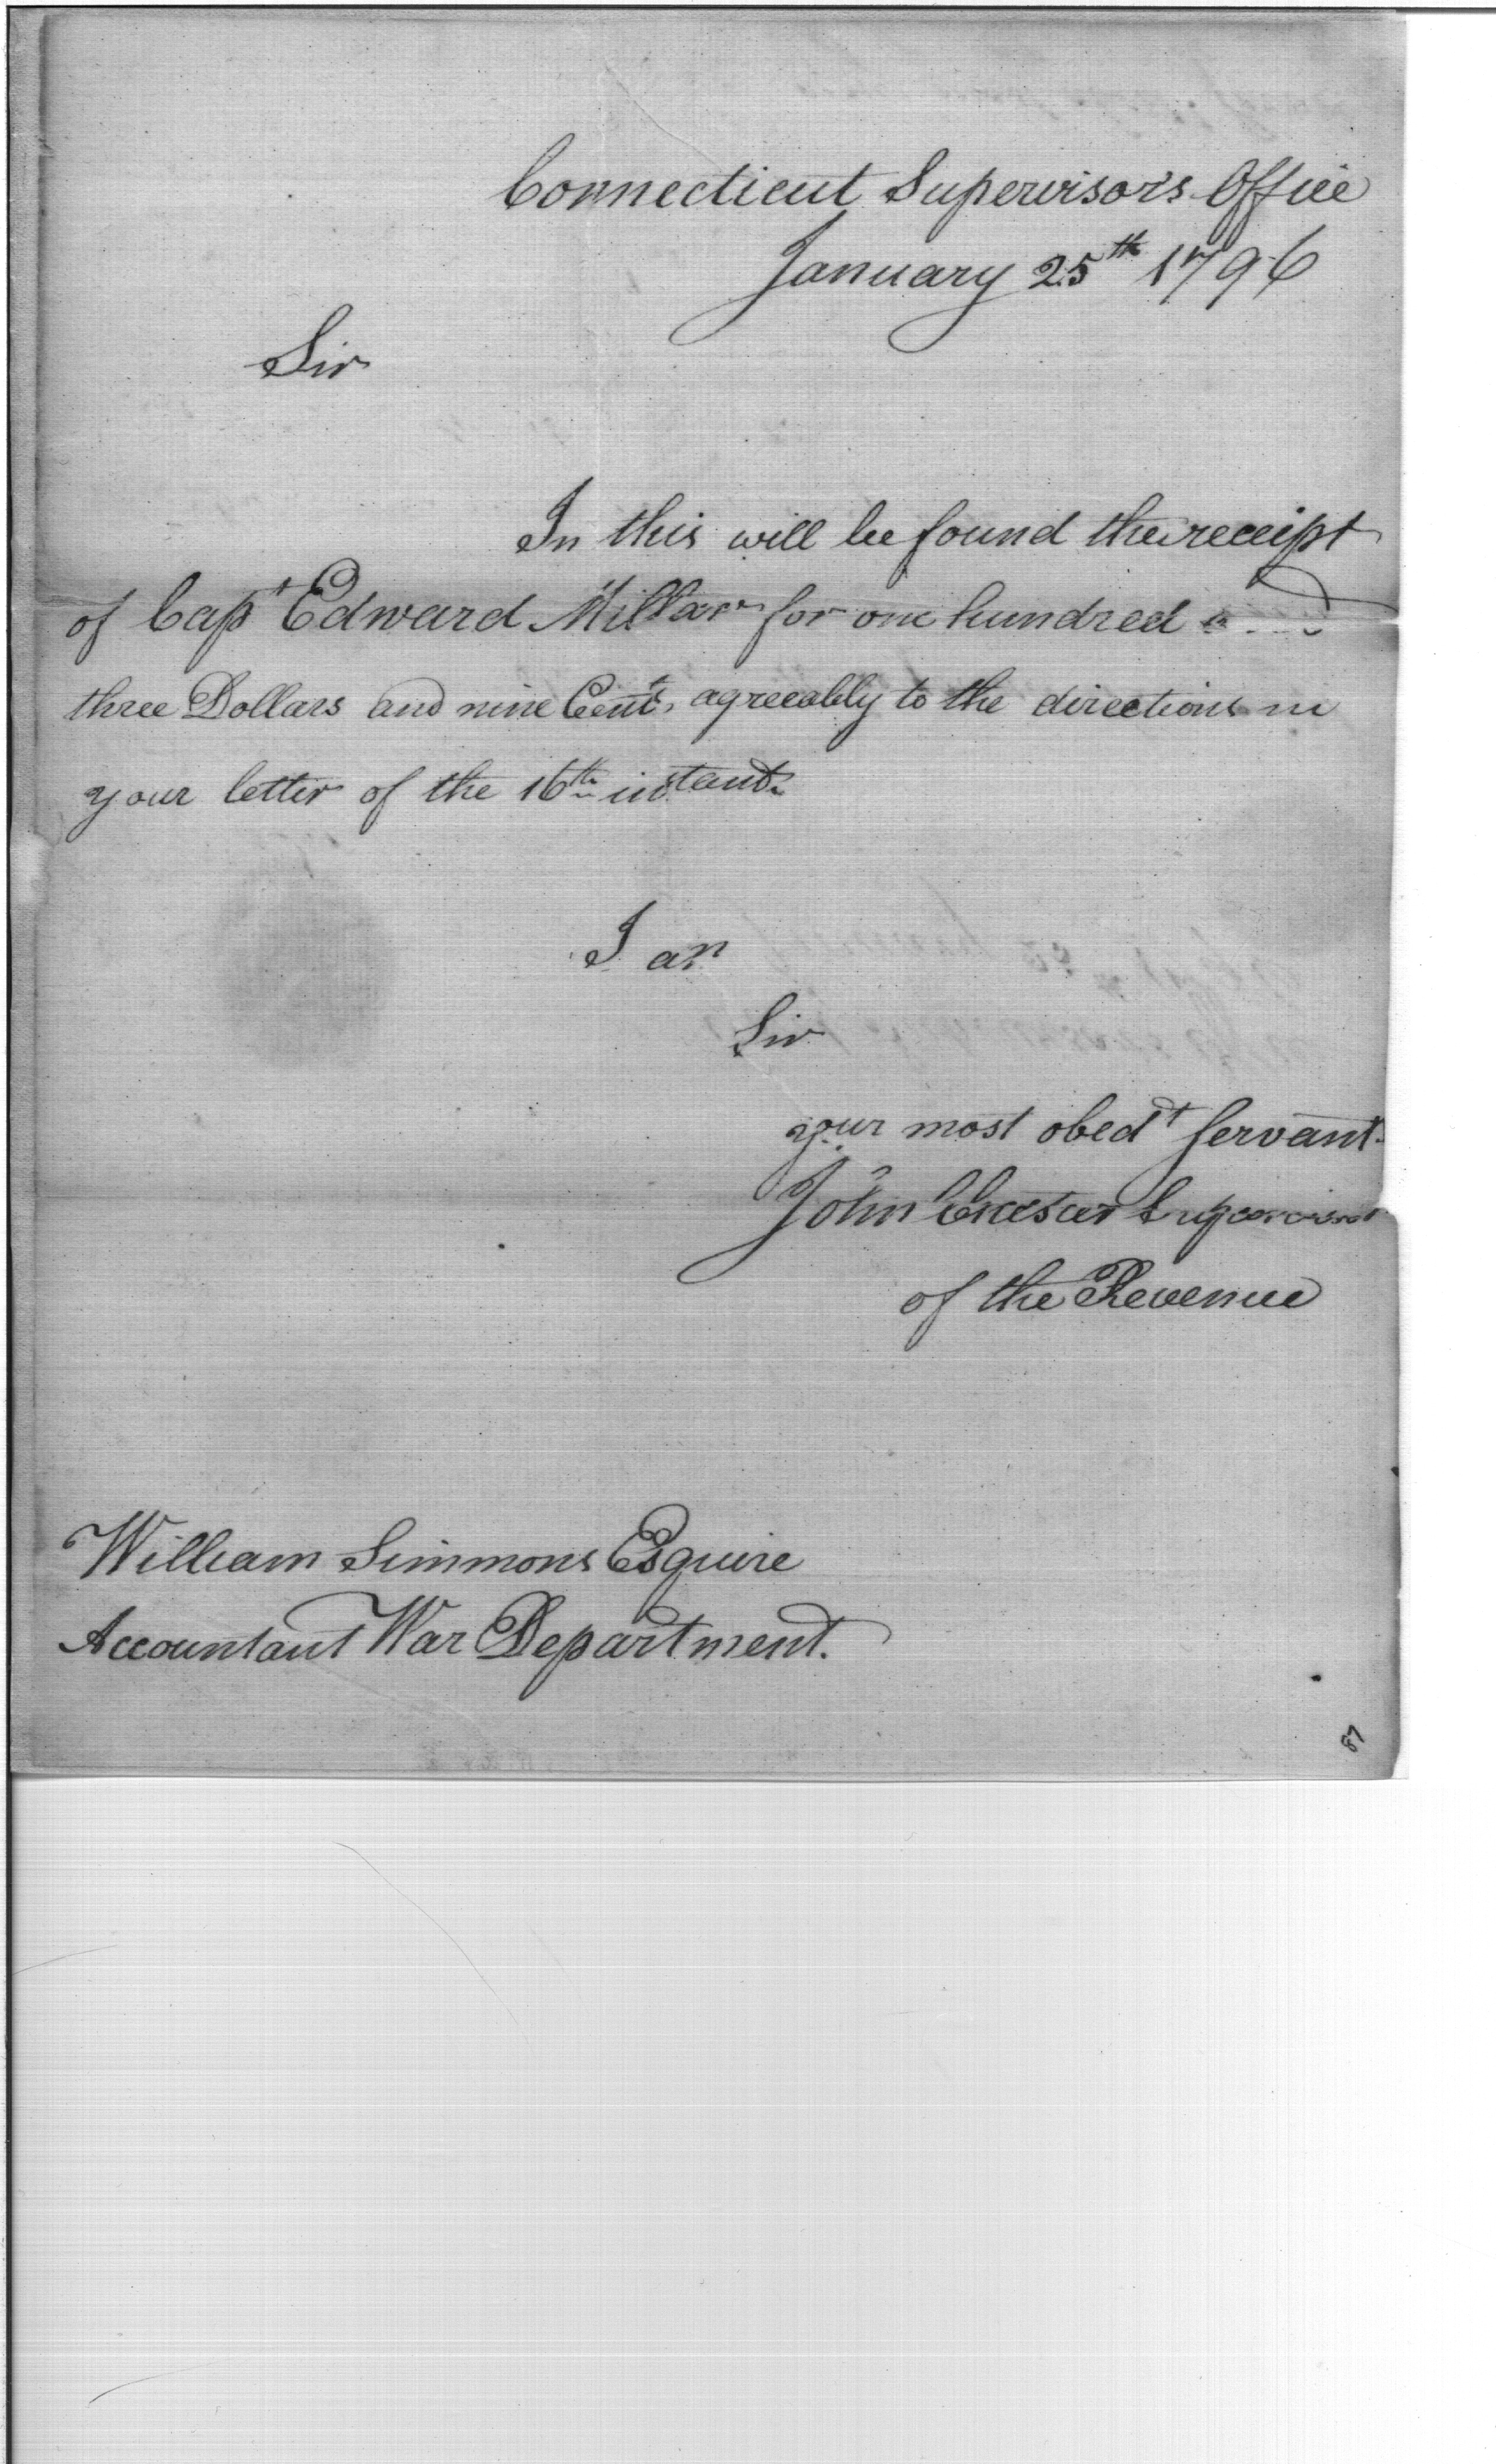 Connecticut Supervisors Office
January 25th 1796
Sir
In this will be found the receipt
of Capt Edward Millar for one hundred
three Dollars and nine Cents, agreeably to the directions in
your letter of the 16th instant.
I am
Sir
your most obedt Servant
John Chester Supervisor
of the Revenue
William Simmons Esquire
Accountant War Department.
87